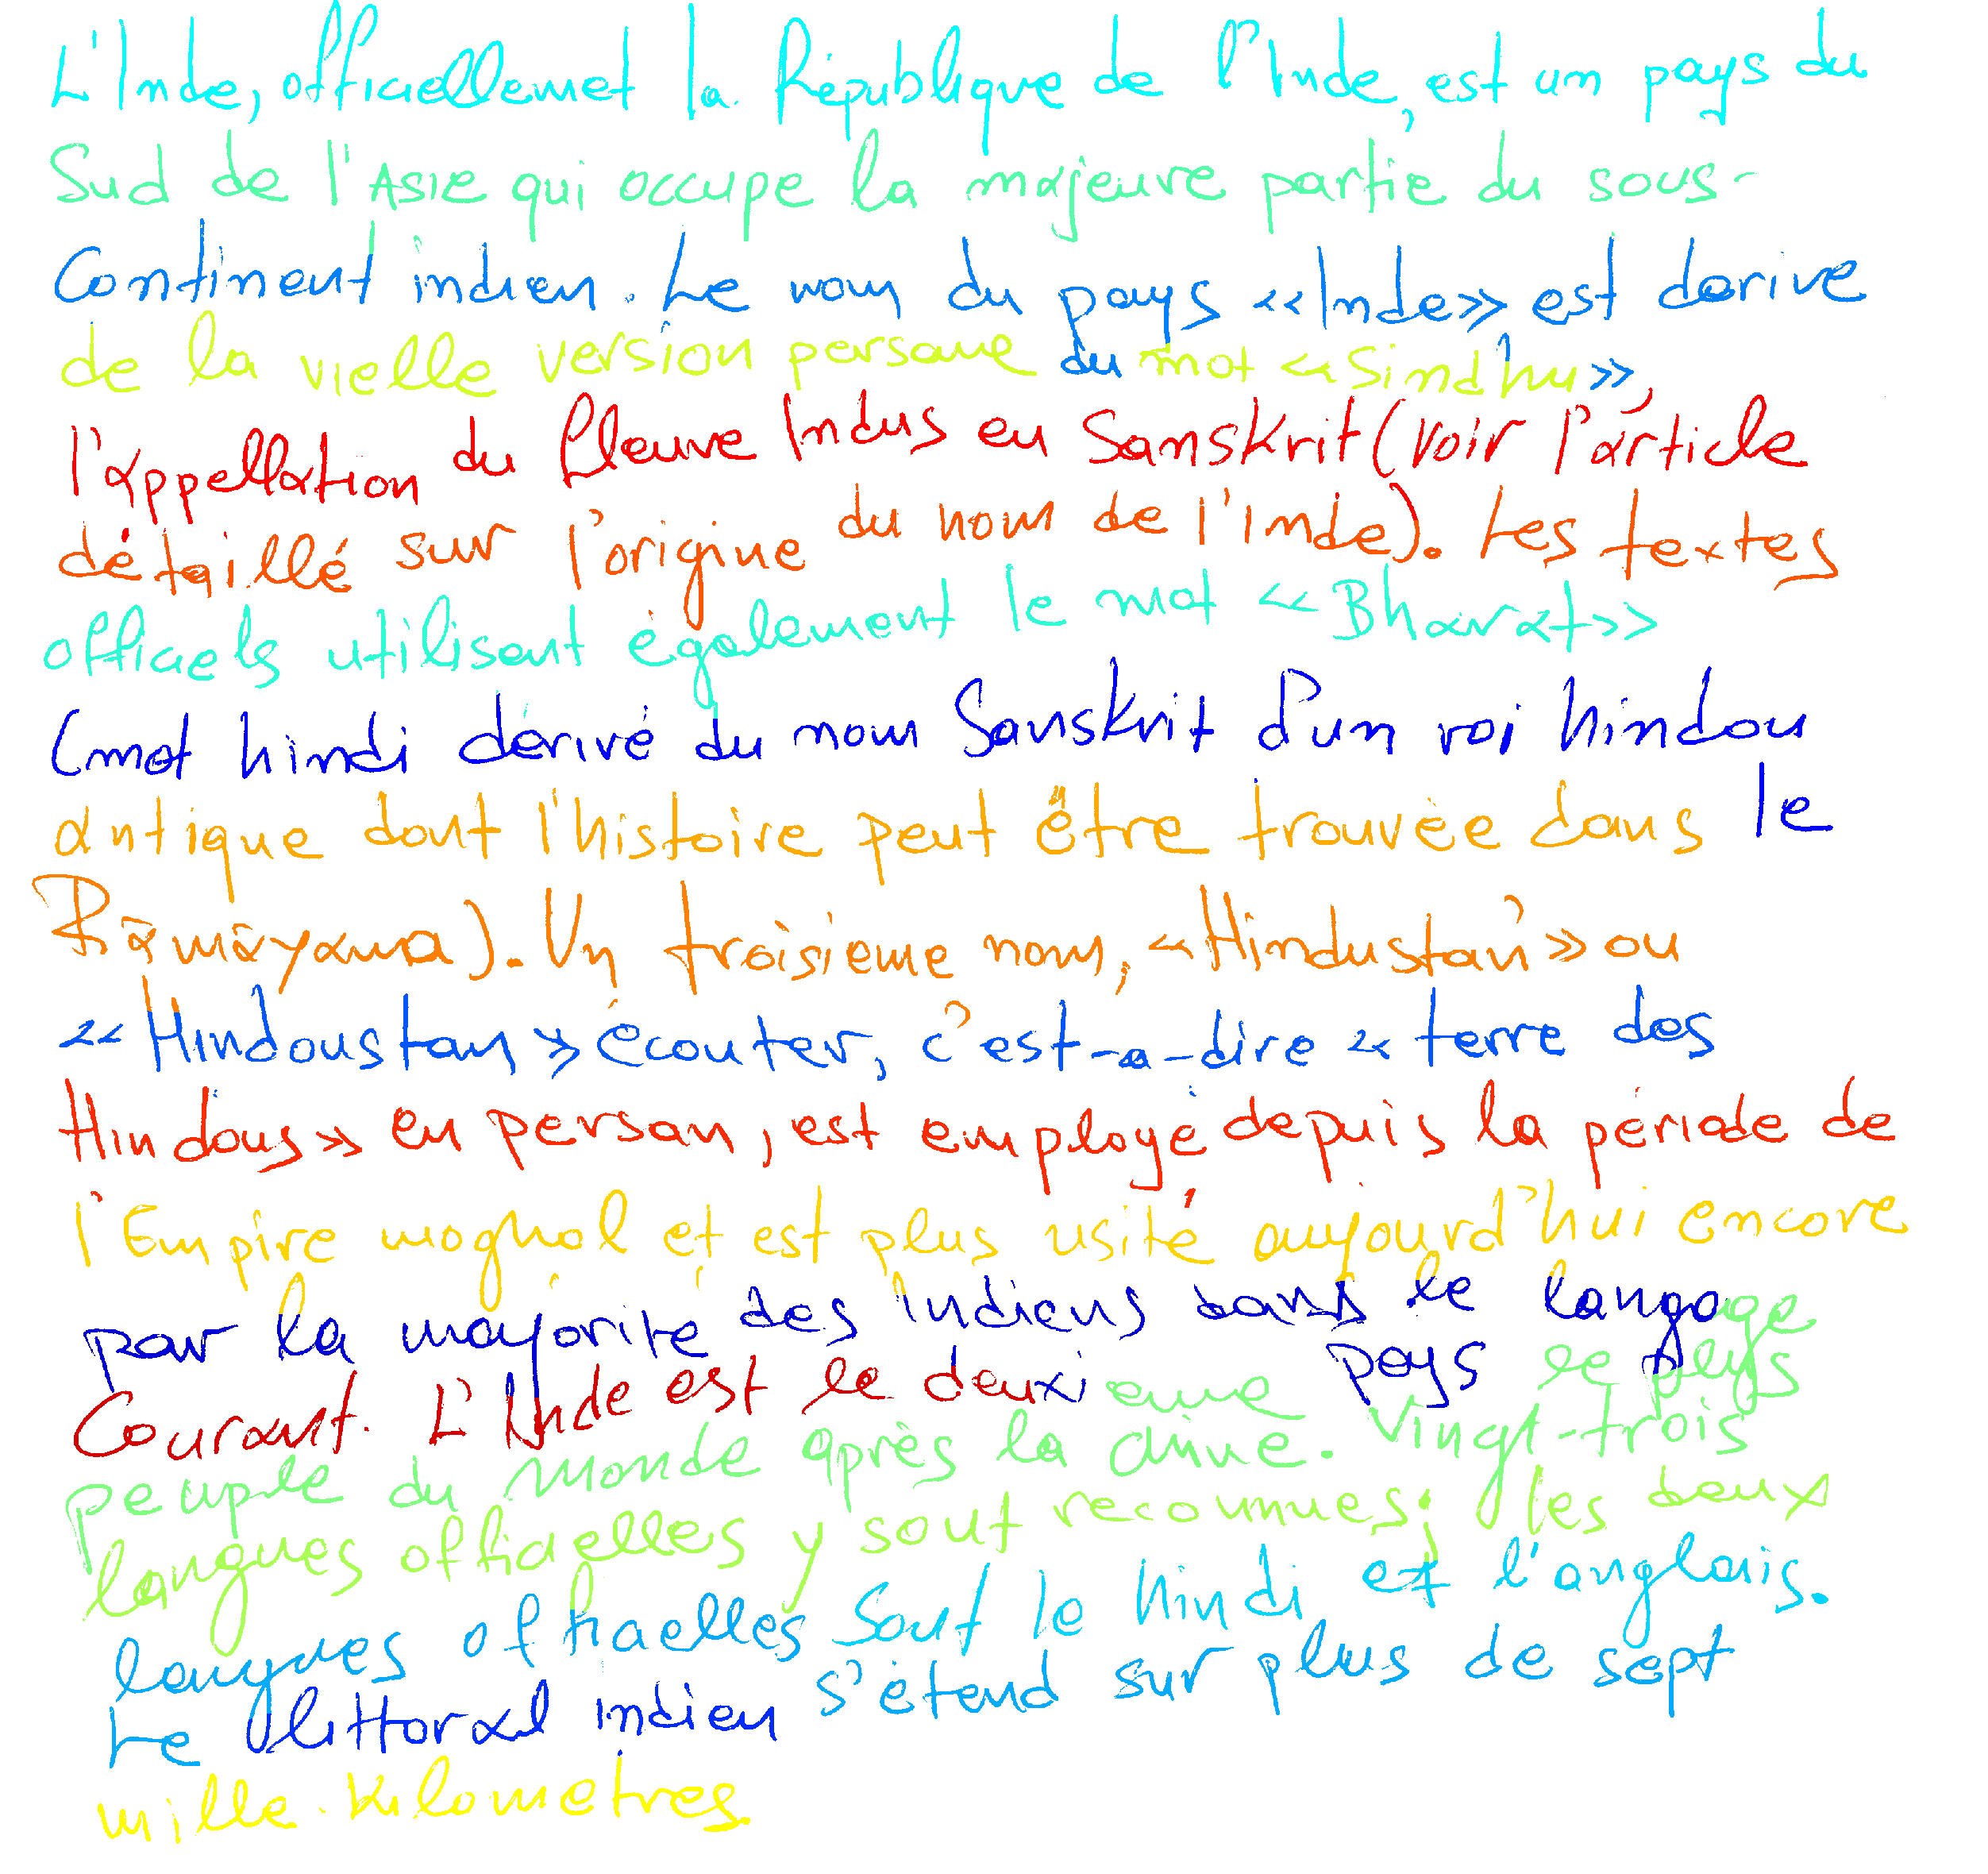 L'Inde, officiellemet la République de l'Inde, est un pays du
Sud de l'Asie qui occupe la majeure partie du sous-
Continent indien. Le nom du pays «Inde» est dérive
de la vielle version persane du mot «Sindhu»,
l'appellation du fleuve Indus en Sanskrit (voir l'article
détaillé sur l'origine du nom de l'Inde). Les textes
officiels utilisent également le mot «Bharat»
(mot hindi dérivé du nom Sanskrit d'un roi hindou
antique dont l'histoire peut être trouvée dans le
Rāmāyana). Un troisieme nom, «Hindustan» ou
«Hindoustan» écouter, c'est-a-dire «terre des
Hindous» en persan, est employé depuis la période de
l'Empire moghol et est plus usité aujourd'hui encore
par la majorité des Indiens dans le langage
Courant. L'Inde est le deuxieme pays le plus
peuple du monde après la Chine. Vingt-trois
langues officielles y sont reconnues; les deux
langues officielles sont le hindi et l'anglais.
Le littoral indien s'étend sur plus de sept
mille kilometres.